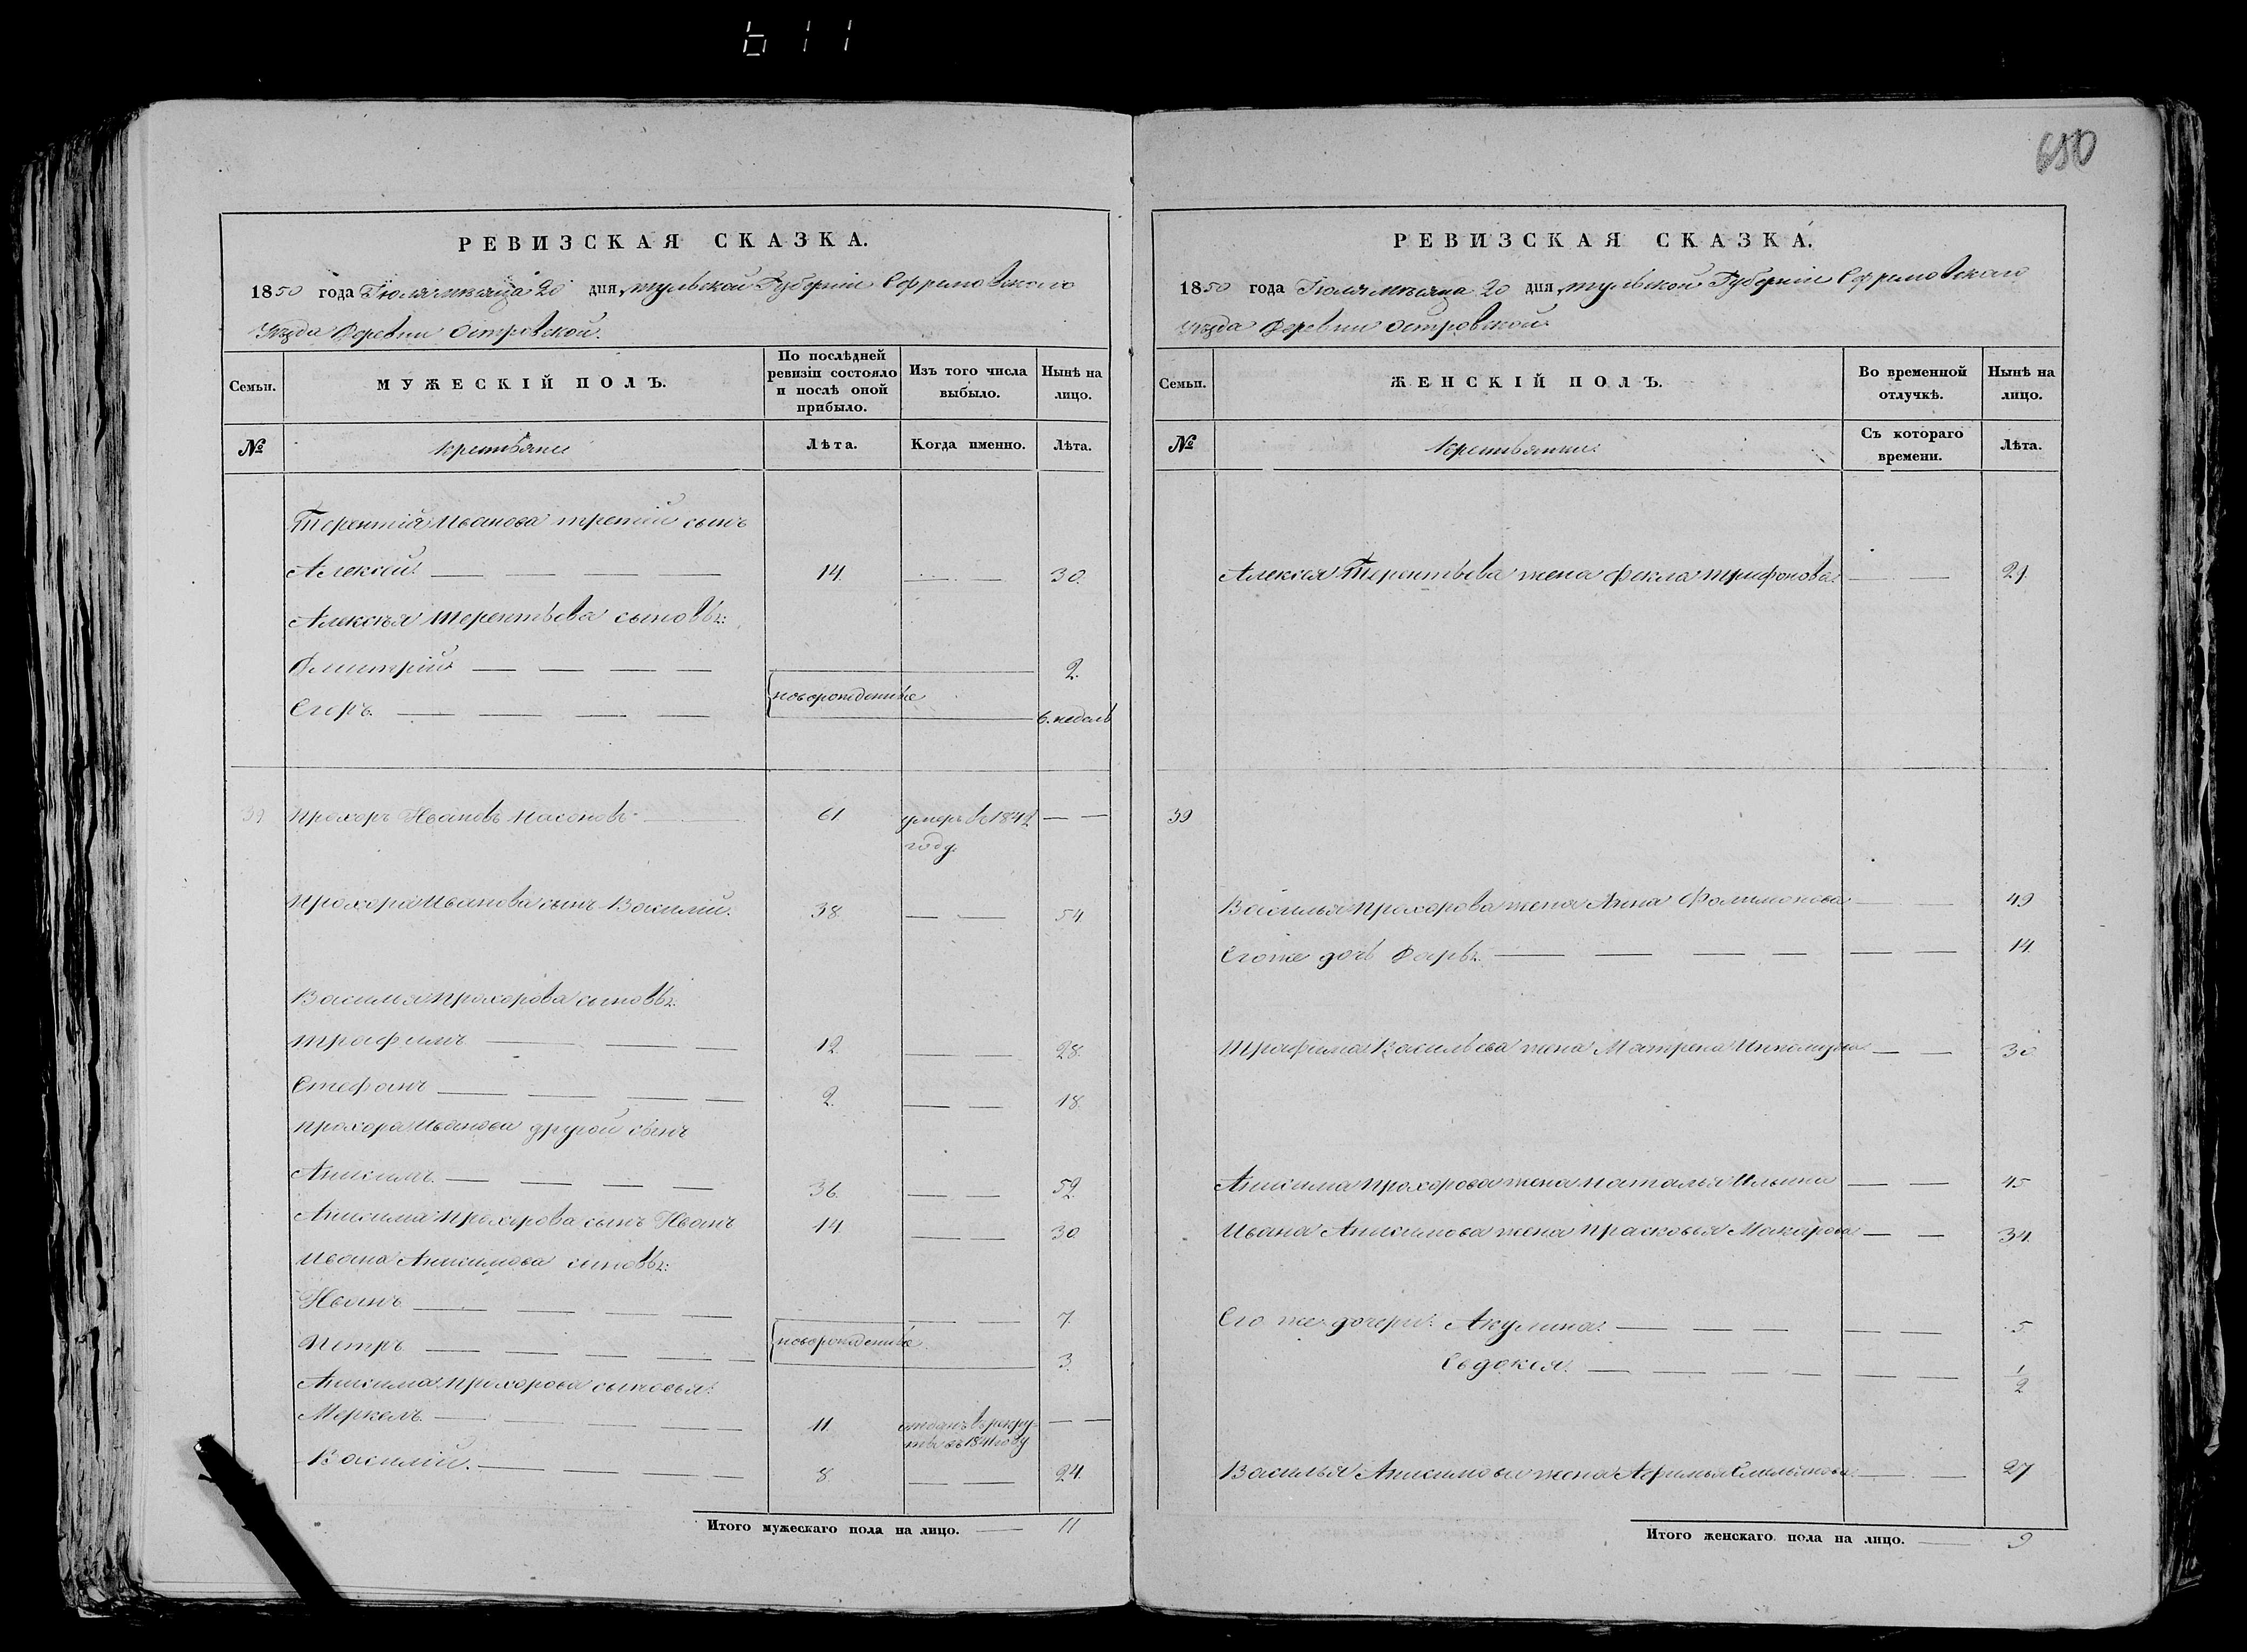 611
650
РЕВИЗСКАЯ СКАЗКА.
1850 года Іюля мѣсяца 20 дня, Тульской Губерніи Ефремовскаго
Уѣзда Деревни Островской.
Семьи. МУЖЕСКІЙ ПОЛЪ. По послѣдней ревизіи состояло и послѣ оной прибыло. Изъ того числа выбыло. Нынѣ на лицо.
№ Крестьяне Лѣта. Когда именно. Лѣта.
Терентія Иванова третій сынъ
Алексей 14. 30.
Алексѣя Терентьева сыновья:
Дмитрій 2.
новорожденные
Егоръ 6. недель
39 Прохоръ Ивановъ 61 умеръ в 1842
году.
Прохора Иванова сынъ Василій. 38. 54
Василия Прохорова сыновья:
Трофимъ 12. 28.
Стефанъ 2. 18.
Прохора Иванова другой сынъ
Анисимъ. 36. 52.
Анисима Прохорова сынъ Иванъ 14. 30
Ивана Анисимова сыновья:
Иванъ 7.
новорожденные
Петръ 3.
Анисима Прохорова сыновья:
Меркелъ 11. отданъ в рекру-
ты въ 1841 году
Василій. 8. 24.
Итого мужескаго пола на лицо. 11
РЕВИЗСКАЯ СКАЗКА.
1850 года Іюля мѣсяца 20 дня, Тульской Губерніи Ефремовскаго
Уѣзда Деревни Островской.
Семьи. ЖЕНСКІЙ ПОЛЪ. Во временной отлучкѣ. Нынѣ на лицо.
№ Крестьянки. Съ котораго времени. Лѣта.
Алексея Терентьева жена Фекла Трифонова 21.
39
Василья Прохорова жена Анна Фолимонова 49
Его же дочь Дарья 14.
Трофима Васильева жена Матрена 30
Анисима Прохорова жена Наталья Ильина 45
Ивана Анисимова жена Прасковья Макарова 34.
Его же дочери: Акулина. 5
Евдокия. 1/2
Василья Анисимова жена Афимья Емельянова 27
Итого женскаго пола на лицо. 9